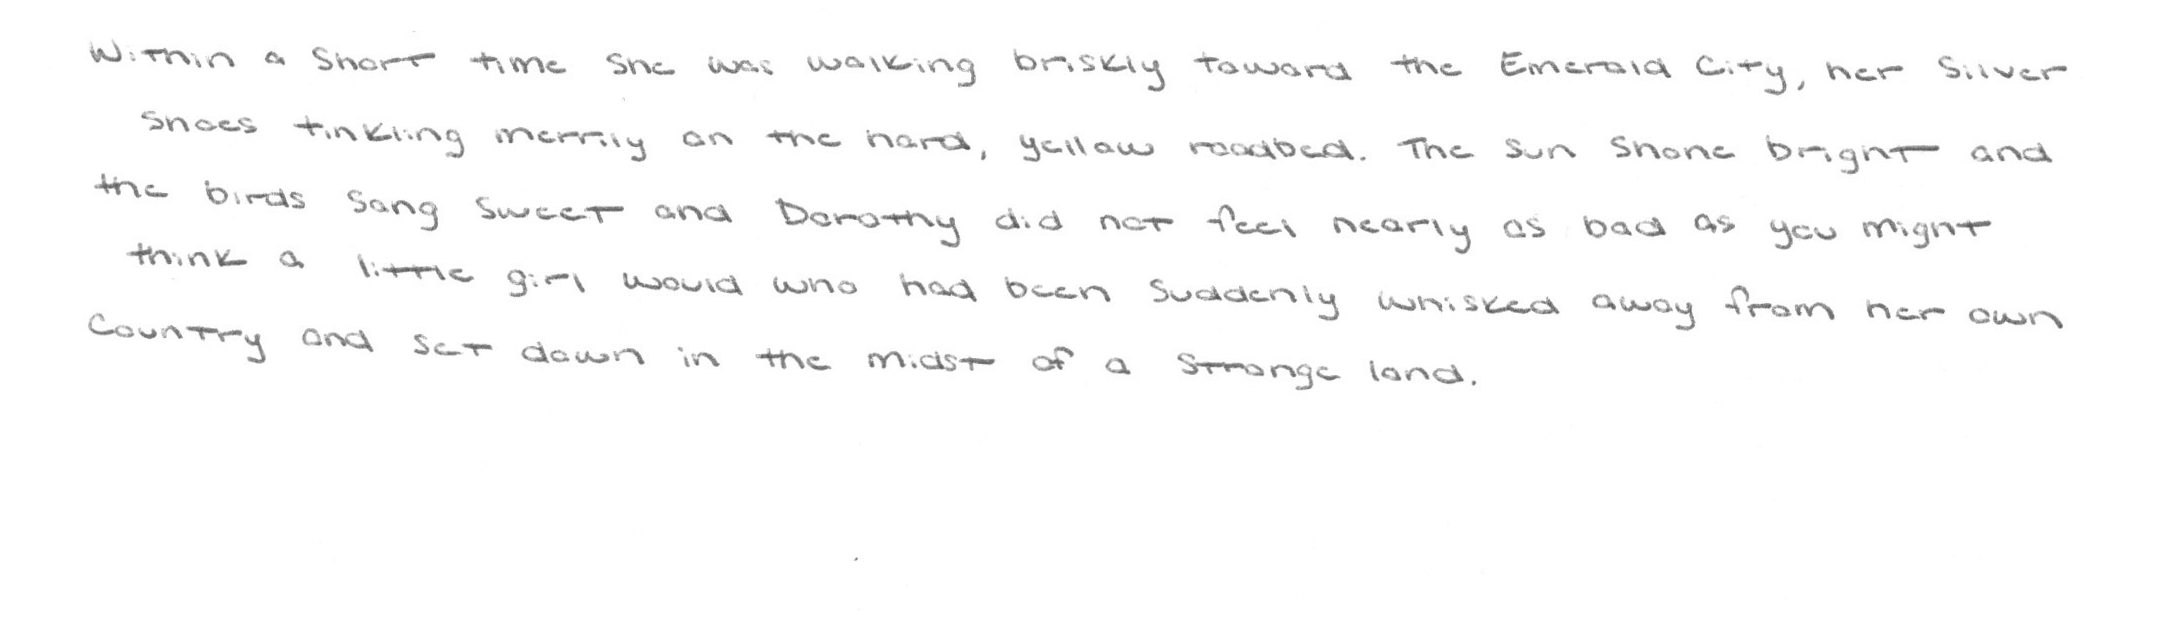 Within a short time she was walking briskly toward the Emerald City, her Silver
Shoes tinkling merrily on the hard, yellow roadbed. The sun shone bright and
the birds sang sweet and Dorothy did not feel nearly as bad as you might
think a little girl would who had been suddenly whisked away from her own
country and set down in the midst of a strange land.